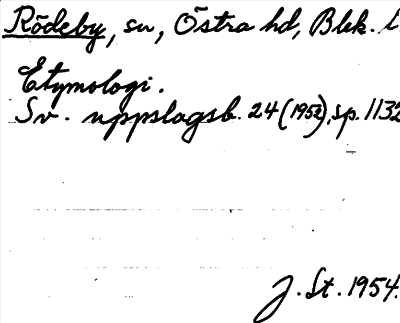 Rödeby, sn, Östra hd, Blek. l.
Etymologi.
Sv. uppslagsb. 24 (1952), sp. 1132
J. St. 1954.